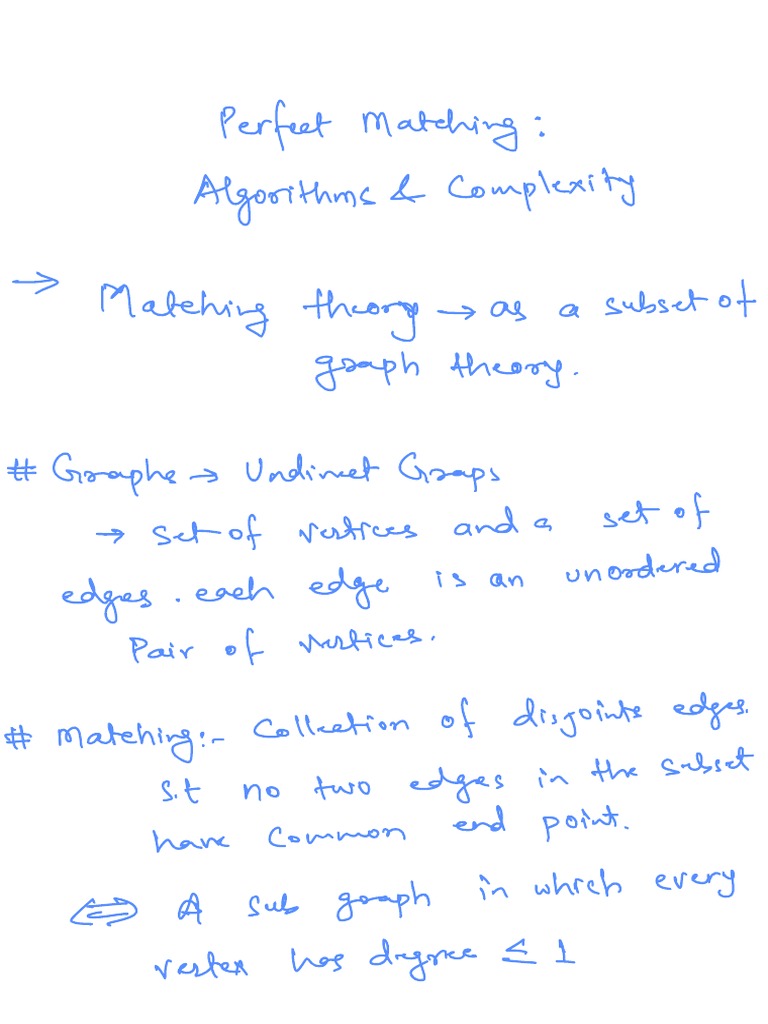 Perfect Matching:
Algorithms & Complexity
→ Matching theory → as a subset of
graph theory.
# Graphs → Undirect Graps
→ set of vertices and a set of
edges. each edge is an unordered
Pair of vertices.
# Matching:- Collection of disjoints edges.
s.t no two edges in the subset
have common end point.
⟺ A sub graph in which every
vertex has degree ≤ 1